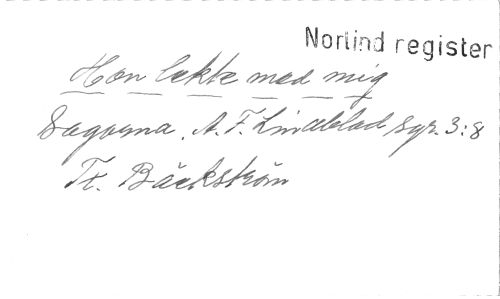 Norlind register
Hon lekte med mig
Sagorna. A. F. Lindblad Sgr. 3:8
Tr. Bäckström